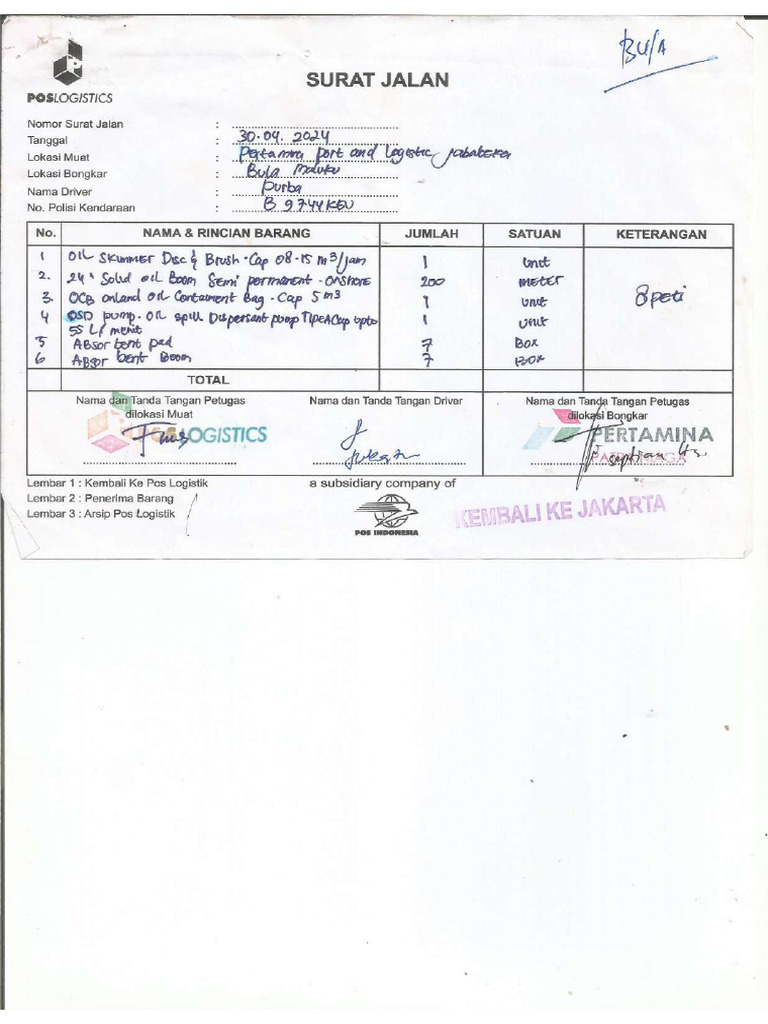 BULA
POSLOGISTICS
SURAT JALAN
Nomor Surat Jalan :
Tanggal : 30.04.2024
Lokasi Muat : Pertamina port and Logistic Jababeka
Lokasi Bongkar : Bula Maluku
Nama Driver : Purba
No. Polisi Kendaraan : B 9744 KEU
No. NAMA & RINCIAN BARANG JUMLAH SATUAN KETERANGAN
1 OIL SKIMMER Disc & Brush - Cap 08-15 m³/jam 1 unit
2. 24" Solid oil Boom Semi permanent - ONSHORE 200 METER
3. OCB onland oil Containent Bag - Cap 5 m³ 1 unit 8 peti
4 OSD pump - Oil spill Dispersant pump TIPE A Cap upto 1 unit
55 L/menit
5 Absorbent pad 7 Box
6 Absorbent Boom 7 Box
TOTAL
Nama dan Tanda Tangan Petugas dilokasi Muat
Nama dan Tanda Tangan Driver
Nama dan Tanda Tangan Petugas dilokasi Bongkar
LOGISTICS
PERTAMINA
PATRA NIAGA
Lembar 1 : Kembali Ke Pos Logistik
Lembar 2 : Penerima Barang
Lembar 3 : Arsip Pos Logistik
a subsidiary company of
POS INDONESIA
KEMBALI KE JAKARTA